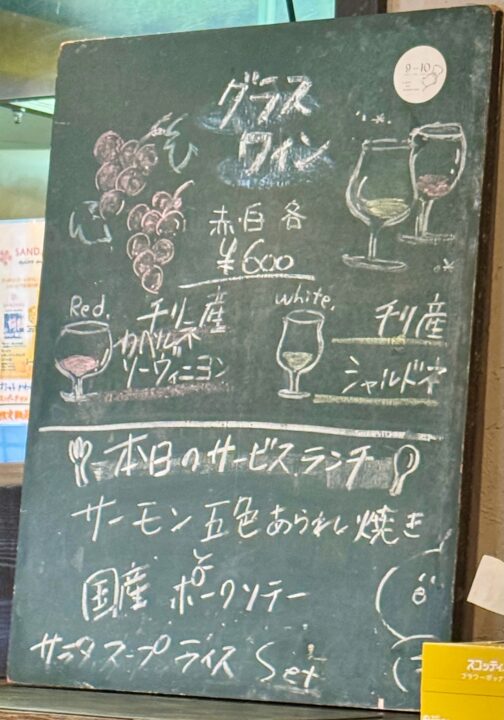 グラス
ワイン
赤・白 各
¥600
Red.
チリー産
カベルネ
ソーヴィニヨン
White.
チリ産
シャルドネ
本日のサービスランチ
サーモン五色あられ焼き
と
国産 ポークソテー
サラダ スープ ライス Set
9-10
SAND
スコッティ
フラワーボックス